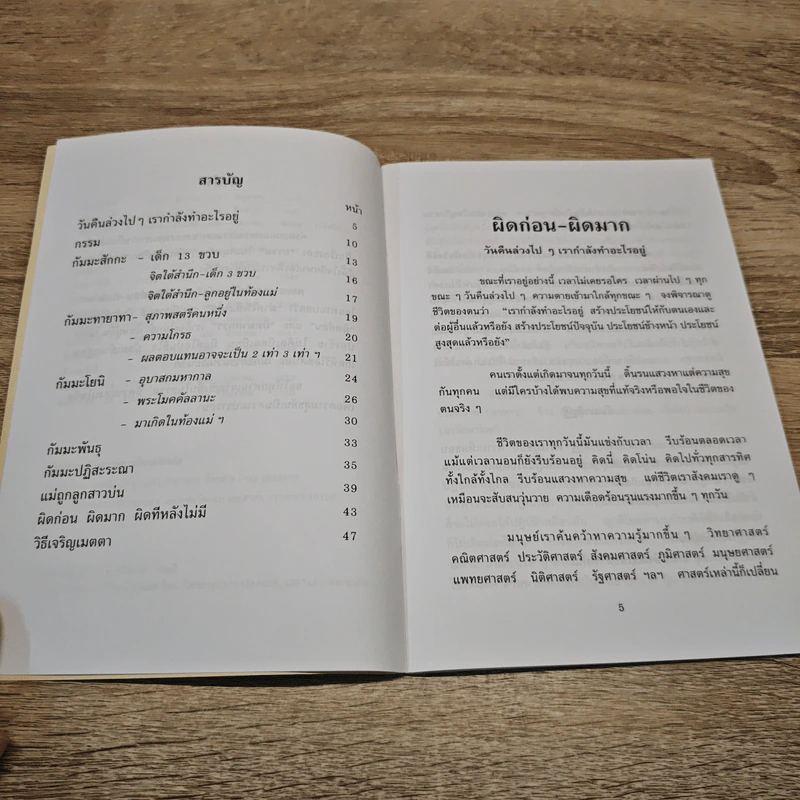 สารบัญ
หน้า
วันคืนล่วงไป ๆ เรากำลังทำอะไรอยู่ 5
กรรม 10
กัมมะสักกะ - เด็ก 13 ขวบ 13
จิตใต้สำนึก-เด็ก 3 ขวบ 16
จิตใต้สำนึก-ลูกอยู่ในท้องแม่ 17
กัมมะทายาทา - สุภาพสตรีคนหนึ่ง 19
- ความโกรธ 20
- ผลตอบแทนอาจจะเป็น 2 เท่า 3 เท่า ๆ 21
กัมมะโยนิ - อุบาสกมหากาล 24
- พระโมคคัลลานะ 26
- มาเกิดในท้องแม่ ๆ 30
กัมมะพันธุ 33
กัมมะปฏิสะระณา 35
แม่ถูกลูกสาวบ่น 39
ผิดก่อน ผิดมาก ผิดทีหลังไม่มี 43
วิธีเจริญเมตตา 47
ผิดก่อน-ผิดมาก
วันคืนล่วงไป ๆ เรากำลังทำอะไรอยู่
ขณะที่เราอยู่อย่างนี้ เวลาไม่เคยรอใคร เวลาผ่านไป ๆ ทุก
ขณะ ๆ วันคืนล่วงไป ๆ ความตายเข้ามาใกล้ทุกขณะ ๆ จงพิจารณาดู
ชีวิตของตนว่า "เรากำลังทำอะไรอยู่ สร้างประโยชน์ให้กับตนเองและ
ต่อผู้อื่นแล้วหรือยัง สร้างประโยชน์ปัจจุบัน ประโยชน์ข้างหน้า ประโยชน์
สูงสุดแล้วหรือยัง"
คนเราตั้งแต่เกิดมาจนทุกวันนี้ ดิ้นรนแสวงหาแต่ความสุข
กันทุกคน แต่มีใครบ้างได้พบความสุขที่แท้จริงหรือพอใจในชีวิตของ
ตนจริง ๆ
ชีวิตของเราทุกวันนี้มันแข่งกับเวลา รีบร้อนตลอดเวลา
แม้แต่เวลานอนก็ยังรีบร้อนอยู่ คิดนี่ คิดโน่น คิดไปทั่วทุกสารทิศ
ทั้งใกล้ทั้งไกล รีบร้อนแสวงหาความสุข แต่ชีวิตเราสังคมเราดู ๆ
เหมือนจะสับสนวุ่นวาย ความเดือดร้อนรุนแรงมากขึ้น ๆ ทุกวัน
มนุษย์เราค้นคว้าหาความรู้มากขึ้น ๆ วิทยาศาสตร์
คณิตศาสตร์ ประวัติศาสตร์ สังคมศาสตร์ ภูมิศาสตร์ มนุษยศาสตร์
แพทยศาสตร์ นิติศาสตร์ รัฐศาสตร์ ฯลฯ ศาสตร์เหล่านี้ก็เปลี่ยน
5